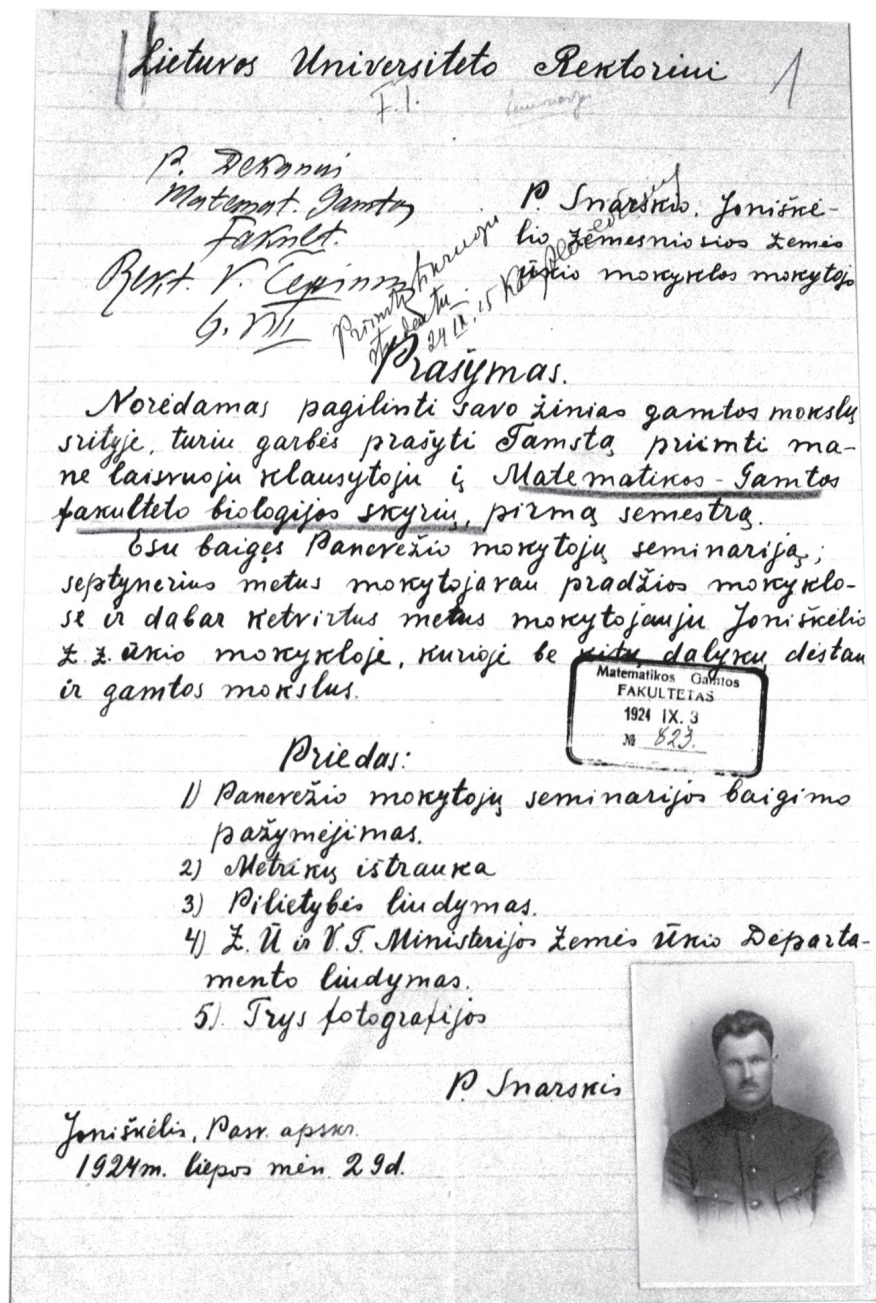 Lietuvos Universiteto Rektoriui
1
F. I.
P. Dekanui
Matemat. Gamtos
Fakult.
Rekt. V. Čepinsk
6. VIII
P. Snarskio, Joniškė-
lio žemesniosios žemės
ūkio mokyklos mokytojo
Priimti tikruoju
studentu
24 IX. 15
Prašymas.
Norėdamas pagilinti savo žinias gamtos mokslų
srityje, turiu garbės prašyti Tamstą priimti ma-
ne laisvuoju klausytoju į Matematikos-Gamtos
fakulteto biologijos skyrių, pirmą semestrą.
Esu baigęs Panevėžio mokytojų seminariją;
septynerius metus mokytojavau pradžios mokyklo-
se ir dabar ketvirtus metus mokytojauju Joniškėlio
ž. ž. ūkio mokykloje, kurioje be kitų dalykų dėstau
ir gamtos mokslus.
Matematikos Gamtos
FAKULTETAS
1924 IX. 3
№ 823.
Priedas:
1) Panevėžio mokytojų seminarijos baigimo
pažymėjimas.
2) Metrikų ištrauka
3) Pilietybės liudymas.
4) Ž. Ū ir V. T. Ministerijos Žemės Ūkio Departa-
mento liudymas.
5) Trys fotografijos
P. Snarskis
Joniškėlis, Pasv. apskr.
1924 m. liepos mėn. 29 d.